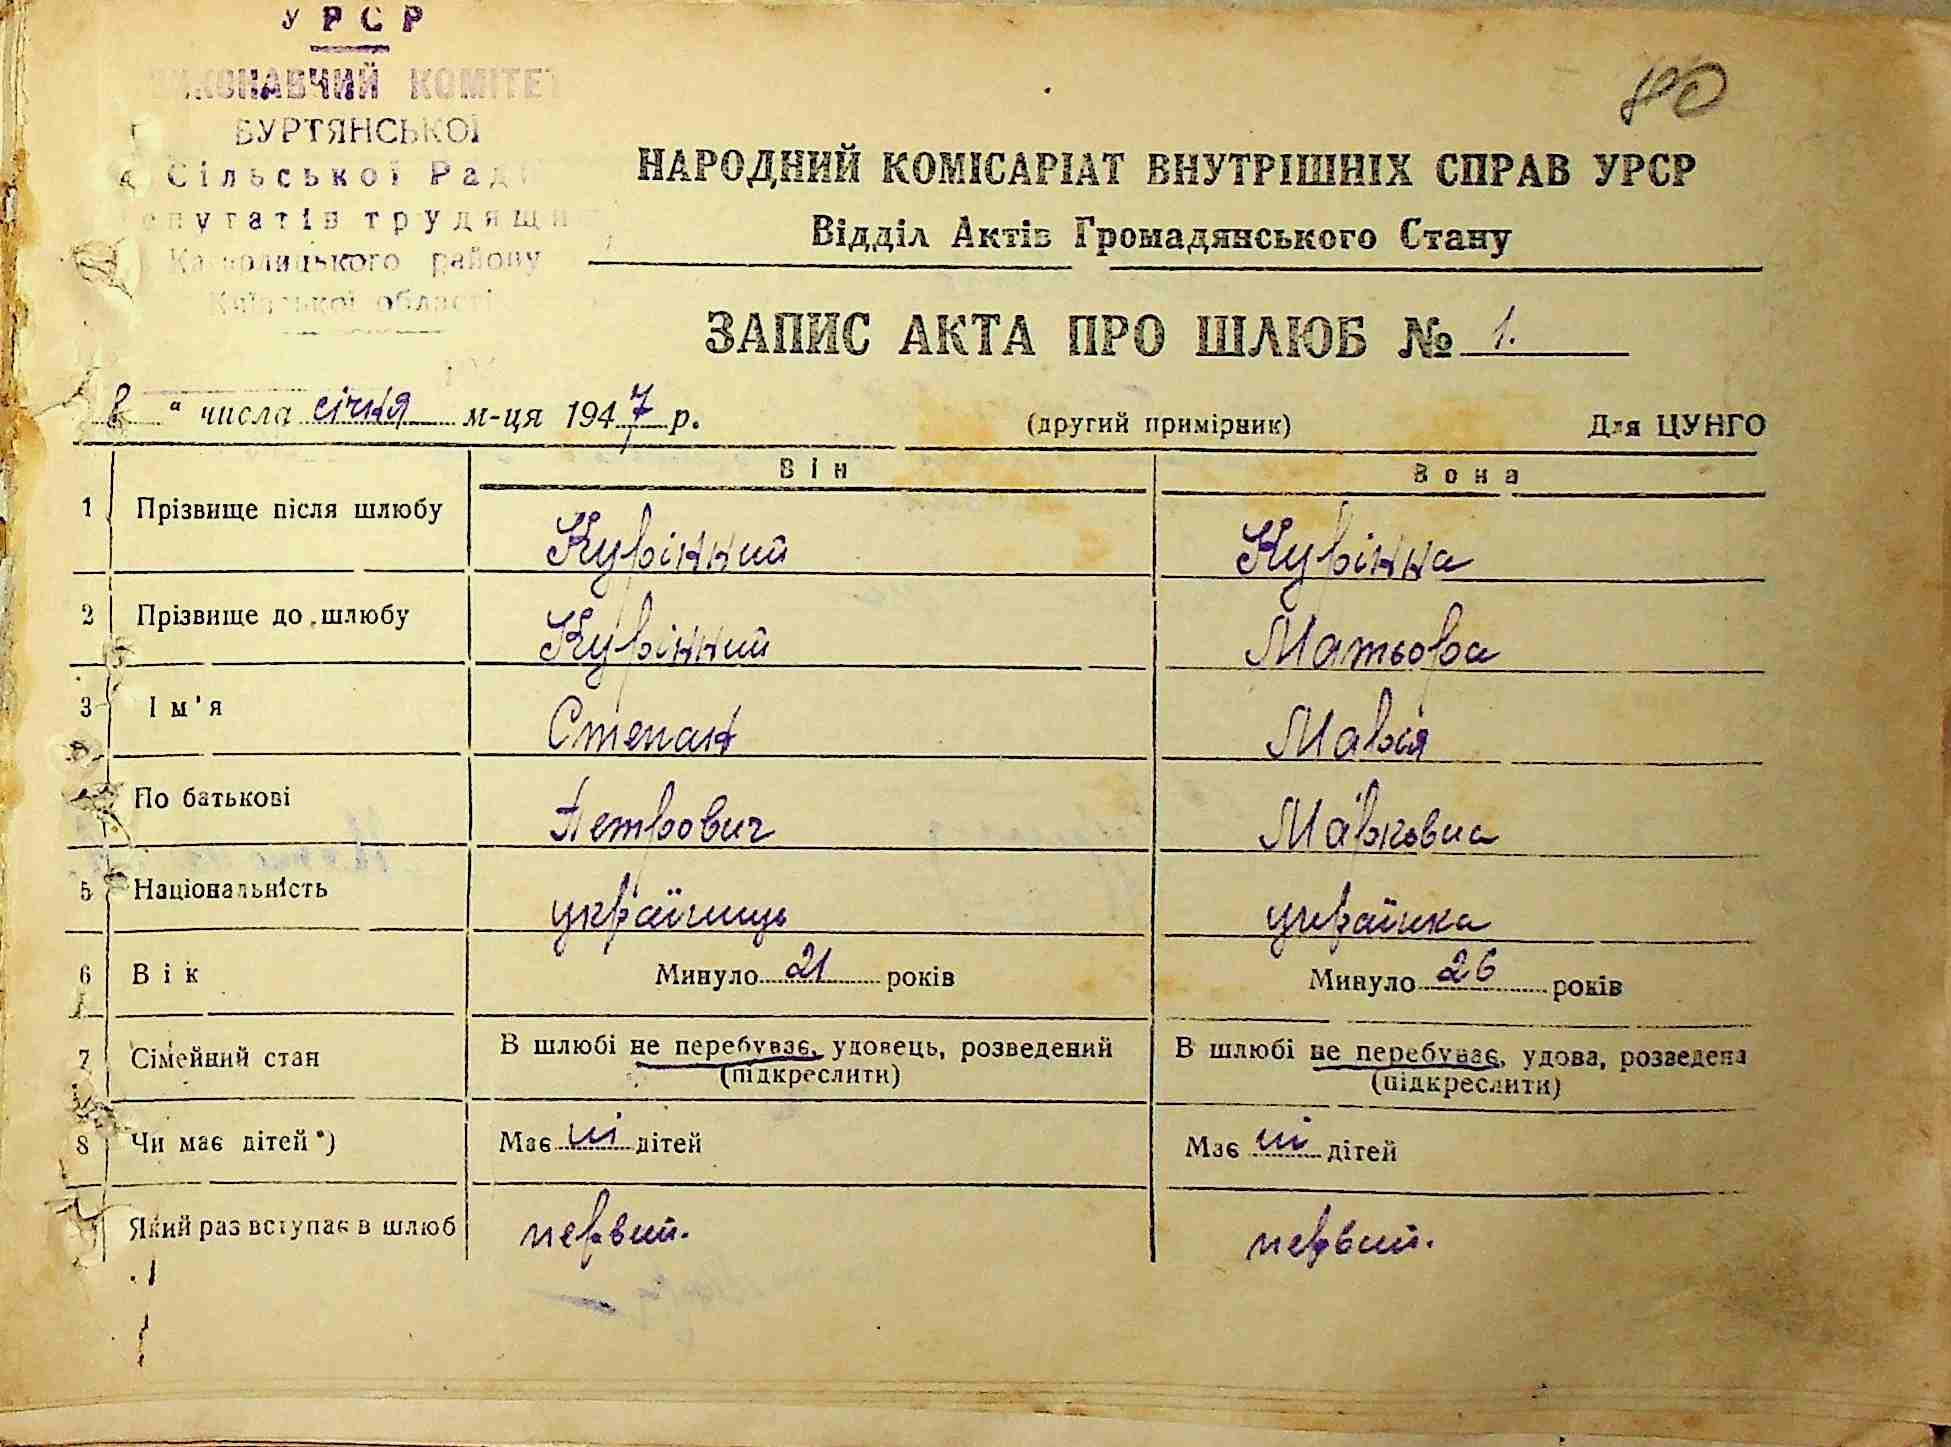 УРСР
ВИКОНАВЧИЙ КОМІТЕТ
БУРТЯНСЬКОЇ
Сільської Ради
депутатів трудящих
Кагарлицького району
Київської області
80
НАРОДНИЙ КОМІСАРІАТ ВНУТРІШНІХ СПРАВ УРСР
Відділ Актів Громадянського Стану
ЗАПИС АКТА ПРО ШЛЮБ № 1.
" числа січня м-ця 1947 р. (другий примірник) Для ЦУНГО
Він Вона
1 Прізвище після шлюбу Курінний Курінна
2 Прізвище до шлюбу Курінний Матьора
3 Ім'я Степан Марія
По батькові Петрович Марковна
5 Національність українець українка
6 Вік Минуло 21 років Минуло 26 років
7 Сімейний стан В шлюбі не перебуває, удовець, розведений В шлюбі не перебуває, удова, розведена
(підкреслити) (підкреслити)
8 Чи має дітей*) Має ні дітей Має ні дітей
Який раз вступає в шлюб первий. первий.